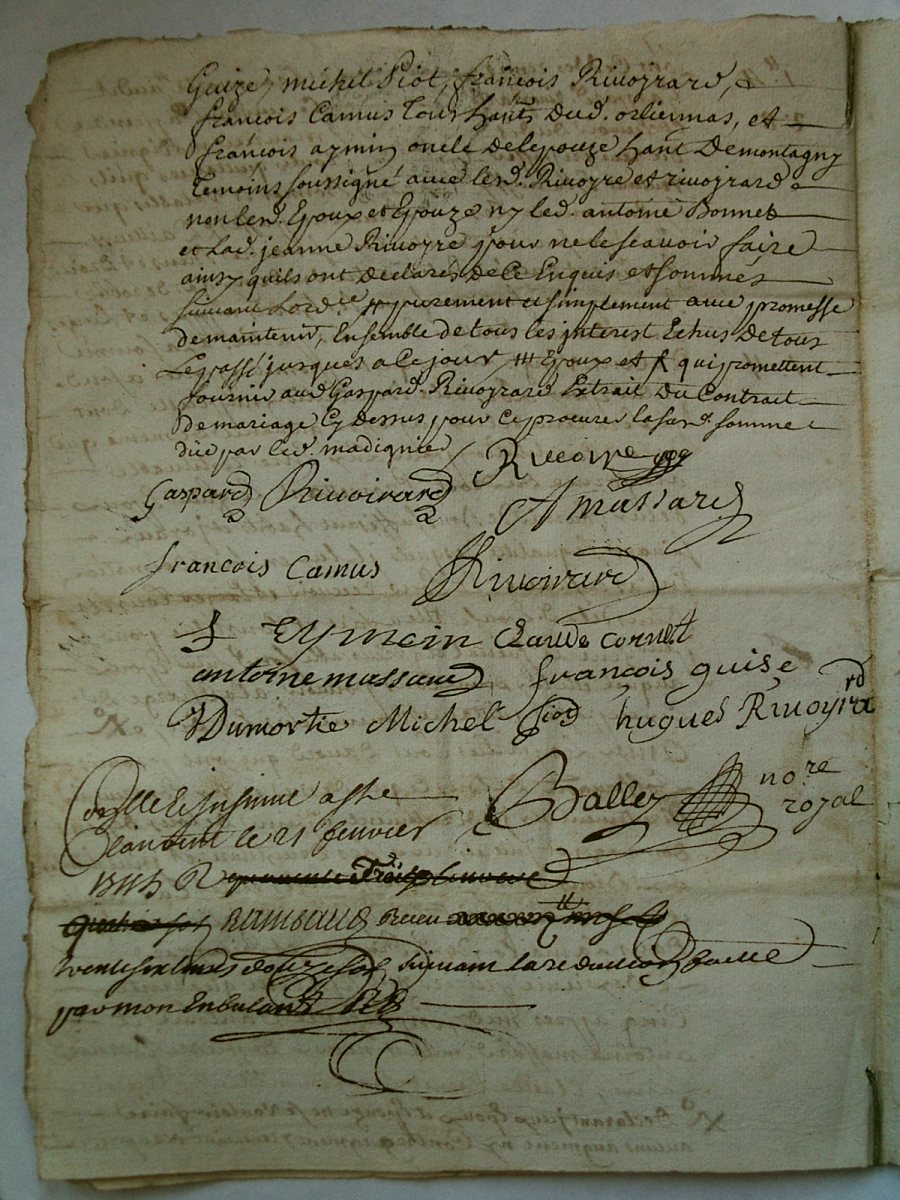 Guize, michel Piot, françois Rivoyrard, &
françois Camus tous hants dud. orliennas, et
françois aymin oncle de lepouze hant de montagny
temoins soussigné avec lesd. Rivoyre et rivoyrard
non lesd. Epoux et Epouze ny led. antoine Bonnet
et lad. jeanne Rivoyre pour ne le scavoir faire
ainsy quils ont declarés de ce Enquis et sommés
suivant lord.ce # purement et simplement avec promesse
de maintenir, Ensemble de tous les interest Echus de tout
Le passé jusques a ce jour /// Epoux et qui promettent
fournir aud Gaspard Rivoyrard Extrait du Contrait
de mariage Cy dessus pour ce procurer la sus.d somme
due par led. madignier
Rivoire
Gaspard Rivoirard
A massard
francois Camus Rivoirard
f Eymein Claude cornet
antoine massard françois guise
Dumortie Michel piod hugues Rivoyrrd
Balley no.re
royal
Conlle Et jnsinué a st he
Clanvent le 21 fenvrier
1745 R
Rambaud Receu
trente six livres douze sols suivant la reduction faitte
par mon Enbulant